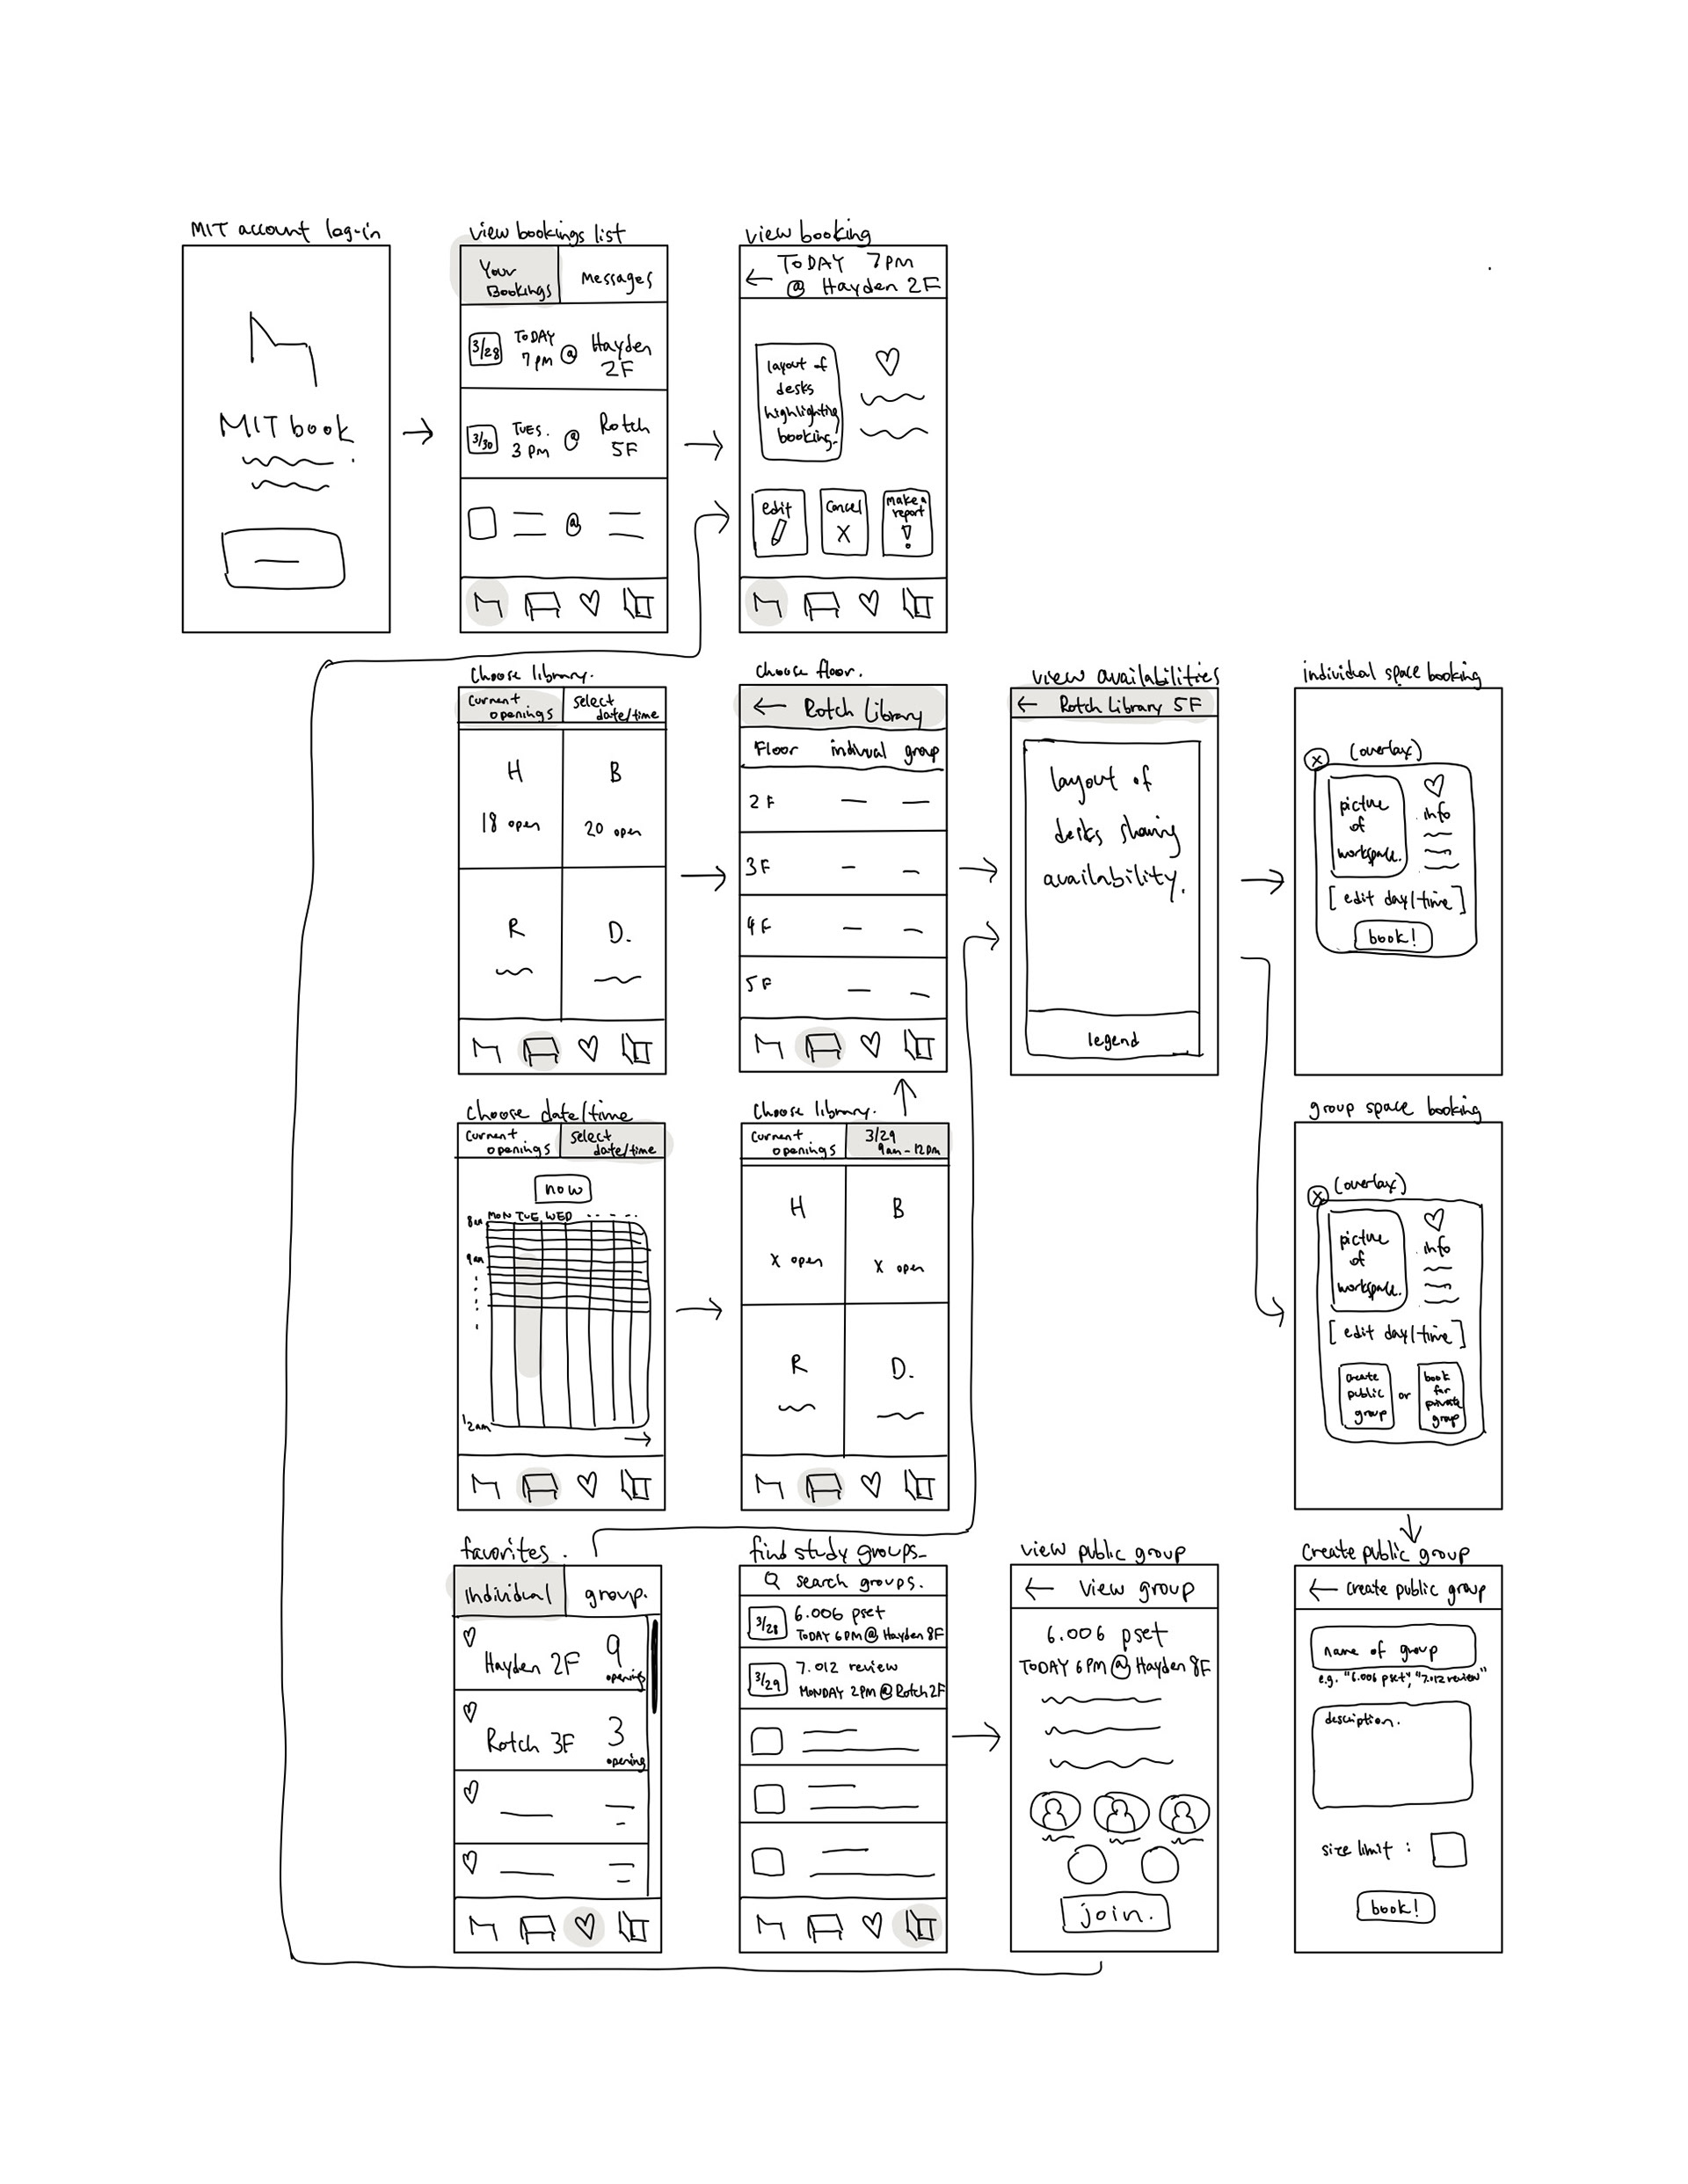 MIT account log-in
MIT book
view bookings list
Your
Bookings
Messages
3/28
TODAY
7pm
@
Hayden
2F
3/30
TUES.
3 pm
@
Rotch
5F
@
view booking
← TODAY 7PM
@ Hayden 2F
layout of
desks
highlighting
booking.
edit
cancel
X
make a
report
!
Choose library.
Current
openings
select
date/time
H
18 open
B
20 open
R
D.
Choose floor.
← Rotch Library
Floor indivual group
2F
3F
4F
5F
view availabilities
← Rotch Library 5F
layout of
desks showing
availability.
legend
individual space booking
(overlay)
X
picture
of
workspace.
info
[edit day/time]
book!
Choose date/time
Current
openings
select
date/time
now
MON TUE WED
8am
9am
12am
Choose library.
Current
openings
3/29
9am-12pm
H
X open
B
X open
R
D.
group space booking
(overlay)
X
picture
of
workspace.
info
[edit day/time]
create
public
group
or
book
for
private
group
favorites.
Individual
group.
Hayden 2F
9
openings
Rotch 3F
3
opening
find study groups
search groups.
3/28
6.006 pset
TODAY 6PM @ Hayden 8F
3/29
7.012 review
MONDAY 2PM @ Rotch 2F
view public group
← View group
6.006 pset
TODAY 6PM @ Hayden 8F
join.
Create public group
← Create public group
name of group
e.g. "6.006 pset", "7.012 review"
description.
size limit :
book!